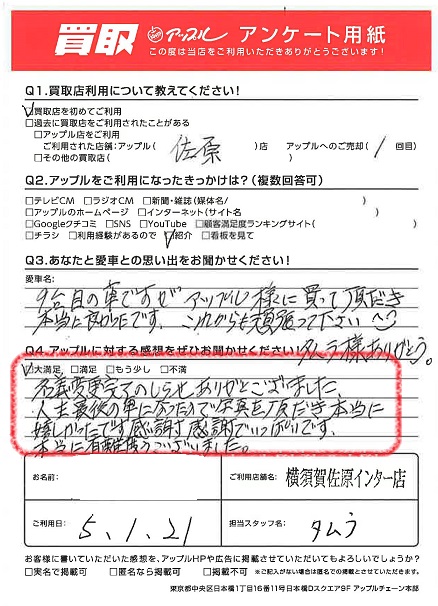 買取 アップル アンケート用紙
この度は当店をご利用いただきありがとうございます!
Q1.買取店利用について教えてください!
☑買取店を初めてご利用
□過去に買取店をご利用されたことがある
□アップル店をご利用
ご利用された店舗:アップル( 佐原 )店 アップルへのご売却( 1 回目)
□その他の買取店( )
Q2.アップルをご利用になったきっかけは?(複数回答可)
□テレビCM □ラジオCM □新聞・雑誌(媒体名/ )
□アップルのホームページ □インターネット(サイト名 )
□Googleクチコミ □SNS □YouTube □顧客満足度ランキングサイト( )
□チラシ □利用経験があるので ☑紹介 □看板を見て
Q3.あなたと愛車との思い出をお聞かせください!
愛車名:
9台目の車ですがアップル様に買って頂だき
本当に良かったです。これからも頑張って下さい
Q4.アップルに対する感想をぜひお聞かせください! タムラ様ありがとう。
☑大満足 □満足 □もう少し □不満
名義変更完了のしらせありがとございました
人生最後の車になったので写真も頂だき本当に
嬉しかったです感謝感謝でいっぱいです。
本当に有難とうございました。
お名前:
ご利用店舗名: 横須賀佐原インター店
ご利用日: 5.1.21
担当スタッフ名: タムラ
お客様に書いていただいた感想を、アップルHPや広告に掲載させていただいてもよろしいでしょうか?
□実名で掲載可 □匿名なら掲載可 □掲載不可 ※ご記入がない場合は匿名での掲載とさせていただきます。
東京都中央区日本橋1丁目16番11号日本橋Dスクエア9F アップルチェーン本部